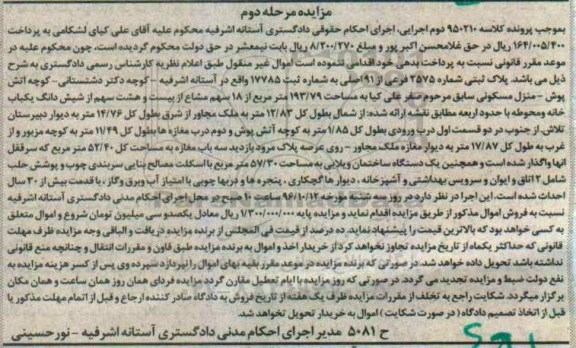 مزایده مرحله دوم
بموجب پرونده کلاسه ۹۵۰۲۱۰ اجرایی، اجرای احکام حقوقی دادگستری آستانه اشرفیه محکوم علیه آقای علی کیای لشکامی به پرداخت
۱۶۴/۰۰۵/۴۰۰ ریال در حق غلامحسن اکبر پور و مبلغ ۸/۲۰۰/۲۷۰ ریال بابت نیمعشر در حق دولت محکوم گردیده است، چون محکوم علیه در
موعد مقرر قانونی نسبت به پرداخت بدهی خود اقدامی ننموده است اموال غیر منقول طبق اعلام نظریه کارشناس رسمی دادگستری به شرح
ذیل می باشد. پلاک ثبتی شماره ۲۵۷۵ فرعی از ۹۱ اصلی به شماره ثبت ۱۷۷۸۵ واقع در آستانه اشرفیه - کوچه دکتر دشتستانی- کوچه آتش
پوش - منزل مسکونی سابق مرحوم صفر علی کیا به مساحت ۱۹۳/۷۹ متر مربع از ۱۸ سهم مشاع از بیست و هشت سهم از شیش دانگ یکباب
خانه ومحوطه با حدود اربعه مطابق نقشه ارائه شده: از شمال بطول ۱۲/۸۳ متر به ملک مجاور از شرق بطول ۱۴/۷۶ متر به دیوار دبیرستان
تلاش، از جنوب در دو قسمت اول درب ورودی بطول ۱/۸۵ متر به کوچه آتش پوش و دوم درب مغازه ها بطول ۱۱/۴۹ متر به کوچه مزبور و از
غرب به طول ۱۷/۸۷ متر به دیوار مغازه ملک مجاور - روی عرصه پلاک مرود بازدید سه باب مغازه به مساحت ۵۲/۴۰ متر مربع که سرقفل
انها واگذار شده است و همچنین یک دستگاه ساختمان ویلایی به مساحت ۵۷/۳۰ متر مربع با اسکلت مصالح بنایی سربندی چوب و پوشش حلب
شامل ۲ اتاق و ایوان و سرویس بهداشتی و آشپزخانه ، دیوار ها گچکاری ، پنجره ها و دربها چوبی با امتیاز آب وبرق وگاز ، با قدمت بیش از ۳۰ سال
احداث شده است. این اجرا در نظر دارد در روز سه شنبه مورخه ۹۶/۱۰/۱۲ ساعت ۱۰ صبح در محل اجرای احکام مدنی دادگستری آستانه اشرفیه
نسبت به فروش اموال مذکور از طریق مزایده اقدام نماید و مزایده پایه ۱/۳۰۰/۰۰۰/۰۰۰ ریال معادل یکصدو سی میلیون تومان شروع و اموال متعلق
به کسی خواهد بود که بالاترین قیمت را پیشنهاد نماید. ده درصد از قیمت فی المجلس از برنده مزایده دریافت و الباقی وجه مزایده ظرف مهلت
قانونی که حداکثر یکماه از تاریخ مزایده تجاوز نخواهد کرد از خریدار اخذ و اموال به برنده مزایده طبق قانون و مقررات انتقال و چنانچه منع قانونی
نداشته باشد تحویل داده خواهد شد. در صورتی که برنده مزایده در موعد مقرر بقیه بهای اموال را نپردازد سپرده وی پس از کسر هزینه مزایده به
نفع دولت ضبط و مزایده تجدید می گردد. در صورتی که روز مزایده با ایام تعطیل مقارن گردد مزایده فردای همان روز همان ساعت و همان مکان
برگزار میگردد. شکایت راجع به تخلف از مقررات مزایده ظرف یک هفته از تاریخ فروش به دادگاه صادر کننده ارجاع و قبل از اتمام مهلت مذکور یا
قبل از اتخاذ تصمیم دادگاه ( در صورت شکایت ) اموال به خریدار تحویل نخواهد شد.
ح ۵۰۸۱ مدیر اجرای احکام مدنی دادگستری آستانه اشرفیه - نورحسینی